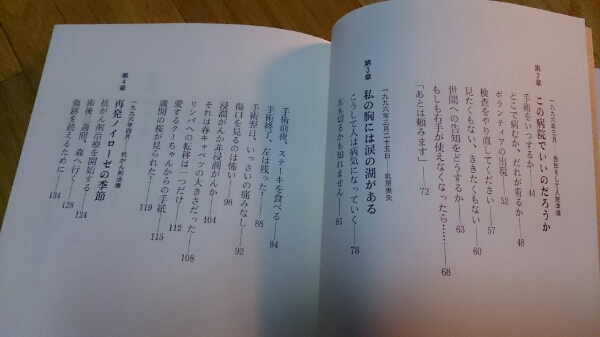 第2章
一九九六年三月——告知そして入院準備
この病院でいいのだろうか
手術をいつするか——44
どこで病むか、だれが看るか——48
ボランティアの出現——52
検査をやり直してください——57
見たくもない、ききたくもない——60
世間への告知をどうするか——63
もしも右手が使えなくなったら……——68
「あとは頼みます」——72
第3章
一九九六年三月二十五日——乳房喪失
私の胸には涙の湖がある
こうして人は病気になっていく——78
左も切るかも知れません——81
手術前夜、ステーキを食べる——84
手術終了、左は残った！——88
手術翌日、いっさいの痛みなし——92
傷口を見るのは怖い——98
浸潤がんか非浸潤がんか——104
それは春キャベツの大きさだった——108
リンパへの転移は一つだけ——112
愛するクーちゃんからの手紙——115
満開の桜が見られた！——119
第4章
一九九六年四月——抗がん剤治療
再発ノイローゼの季節
抗がん剤治療を開始する——124
術後三週間、森へ行く——128
傷跡を超えるために——134